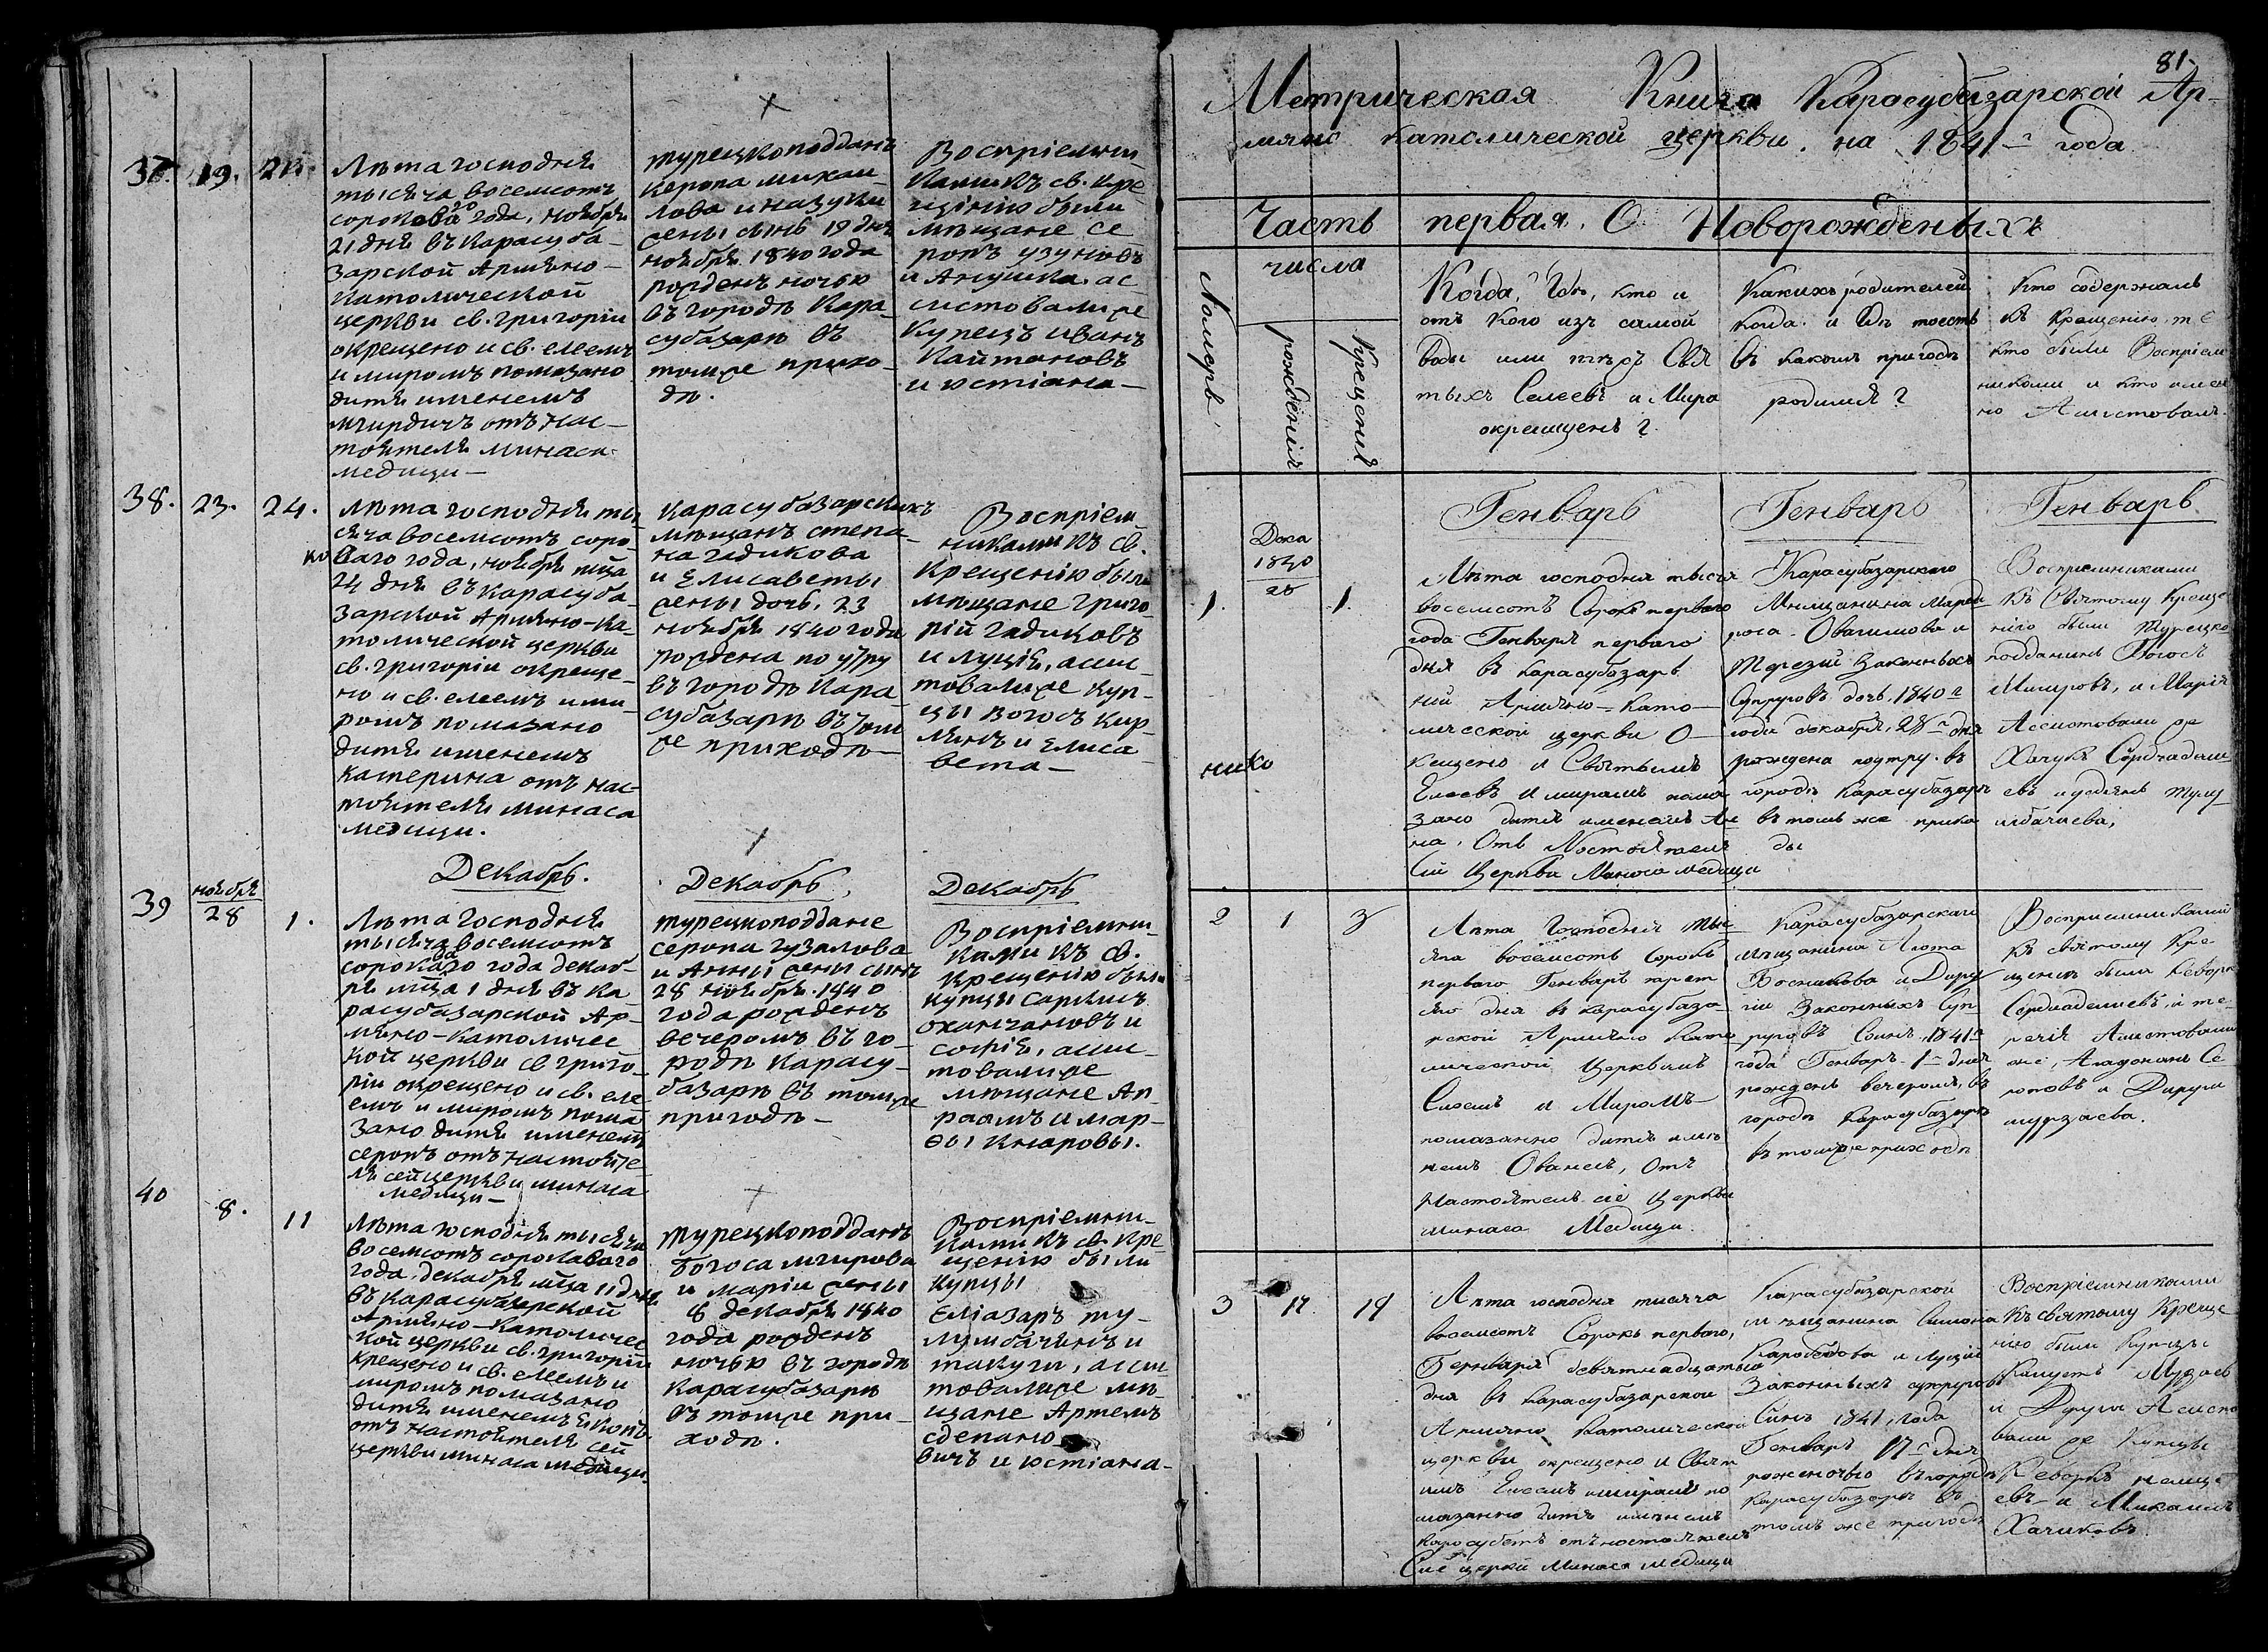 37. 19. 21.
Лѣта господня
тысяча восемсотъ
сороковаго года, ноября
21 дня въ Карасуба-
зарской Армяно-
Католической
церкви св. григорія
окрещено и св. елеемъ
и миромъ помазано
дитя именемъ
мкирдичъ отъ нас-
тоятеля минаса
медици—
турецкоподданъ
керопа михаи-
лова и назуки
жены сынъ 19 дня
ноября 1840 года
рожденъ ночью
въ городѣ Кара-
субазарѣ въ
томже прихо-
дѣ.
Воспріемни-
ками къ св. кре-
щенію были
мѣщане се
ропъ узуновъ
и Анушка. ас
систовалиже
Купецъ иванъ
Кайтановъ
и юстіана—
38. 23. 24.
Лѣта господня ты-
сяча восемсотъ соро-
коваго года, ноября мца
24 дня въ Карасуба-
зарской Армяно-ка-
толической церкви
св. григорія окреще-
но и св. елеемъ и ми-
ромъ помазано
дитя именемъ
Катерина отъ нас-
тоятеля минаса
медици.
Карасубазарскихъ
мѣщанъ степа-
на гадикова
и Елисаветы
жены дочь, 23
ноября 1840 года
рождена по утру
въ городѣ Кара-
субазарѣ въ том
же приходѣ—
Воспріем
никами къ св.
Крещенію были
мѣщане григо
рій гадиковъ
и луція, асси
стовалиже куп-
цы Богосъ кир-
лянъ и Елиса
вета—
Декабрь.
Декабрь,
Декабрь
39 ноября 28 1.
Лѣта господня
тысяча восемсотъ
сороковаго года декаб-
ря мца 1 дня въ ка-
расубазарской Ар-
мяно-Католичес
кой церкви св григо-
рія окрещено и св. еле
емъ и миромъ пома
зано дитя именемъ
серопъ отъ настояте
ля сей церкви минаса
медици—
турецкоподдане
серопа гузалова
и Анны жены сынъ
28 ноября 1840
года рожденъ
вечеромъ въ го-
родѣ Карасу-
базарѣ въ томже
приходѣ—
Воспріемни-
ками къ св.
Крещенію были
купцы саркисъ
оханчановъ и
софія, асси-
стовалиже
мѣщане Ап-
раамъ и мар-
ѳы Кнаровы.
40 8. 11
Лѣта господня тысяча
восемсотъ сороковаго
года, декабря мца 11 дня
въ карасубазарской
Армяно-католичес
кой церкви св. григорія
крещено и св. елеемъ и
миромъ помазано
дитя именемъ
отъ настоятеля сей
церкви минаса медици.
турецкоподданъ
богоса мгирова
и маріи жены
8 декабря 1840
года рожденъ
ночью въ городѣ
Карасубазарѣ
въ томже при-
ходѣ.
Воспріемни-
ками къ св. Кре
щенію были
купцы
Еліазаръ ту-
лумбачянъ и
такуги, асси
стовалиже мѣ-
щане Артемъ
сдепано
вичъ и юстіана-
81.
Метрическая Книга Карасубазарской Ар-
мяно католической церкви. на 1841-г года
Часть первая. О Новорожденыхъ
Номеръ.
числа
рожденія
крещенія
Когда, Гдѣ, кто и
отъ кого изъ самой
воды или Свя
тыхъ Елеевъ и Мира
окрещенъ?
Какихъ родителей
когда. и Гдѣ тоесть
въ какомъ приходѣ
родился?
Кто содержалъ
къ Крещенію, т е
кто были Воспріем
никами и кто имен
но Ассистовалъ.
Генварь
Генварь
Генварь
1. Дека 1840 28 1.
Лѣта господня тысяч
восемсотъ Сорокъ перваго
года Генваря перваго
дня въ карасубазарс
кой Армяно-Като-
лической церкви О-
крещено и Святымъ
Елеевъ и мирамъ пома
зано дитя именемъ Ан
на, Отъ Настоятеля
Сій Церкви Минаса медици
Карасубазарскаго
Мѣщанина Марти
роса Овагимова и
Терезіи Законныхъ
Супруговъ дочь. 1840 г
года декабря, 28-г дня
рождена поутру. въ
городѣ Карасубазарѣ
въ томъ же прихо
ды
Воспріемниками
Къ Святому Креще
нію были Турецко
подданинъ Богосъ
Мкировъ, и Марія
Ассистовали же
Хачукъ Серджадеши
евъ Тулу
мбачиева,
2 1 3
Лѣта Господня тыс
яча восемсотъ Сорокъ
перваго Генварь трет
яго дня въ карасубаза
рской Армяно Като
лической Церквимъ
Елеемъ и Миромъ
помазанно дитя име
немъ Ованесъ, Отъ
Настоятель сіе Церкви
минаса Медици.
Карасубазарскаго
мѣщанина
Боснакова и Дару
гіи Законныхъ Суп
руговъ Сынъ, 1841 г
года Генварь 1-г дня
рожденъ вечеромъ, въ
городѣ карасубазарѣ
въ томже приходѣ
Воспріемниками
Къ святому Кре
щенію были Кеворк
Серджадешиевъ, и те
резія Ассистовали
же, Се
ротовъ и Дируги
мурзаева.
3 17 19
Лѣта господня тисяча
восемсотъ Сорокъ перваго,
Генваря девятнадцатаго
дня въ карасубазарской
Армяно Католической
церкви окрещено и Свят
имъ Елеемъ и мирамъ по
мазанно дитя именемъ
Карабетъ отъ настоятеля
Сіе церкви Минаса медици
Карасубазарской
мѣщанина Симона
Карабетова и Луціи
Законныхъ супругов
Сынъ 1841, года
Генварь 17-г дня
рож. ночью въ городѣ
Карасубазарѣ въ
томъ же приходѣ
Воспріемниками
Къ святому Креще
нію были Купецъ
и Асисто
вали же Купцы
Кеворкъ
евъ и Микаилъ
Хачиковъ.